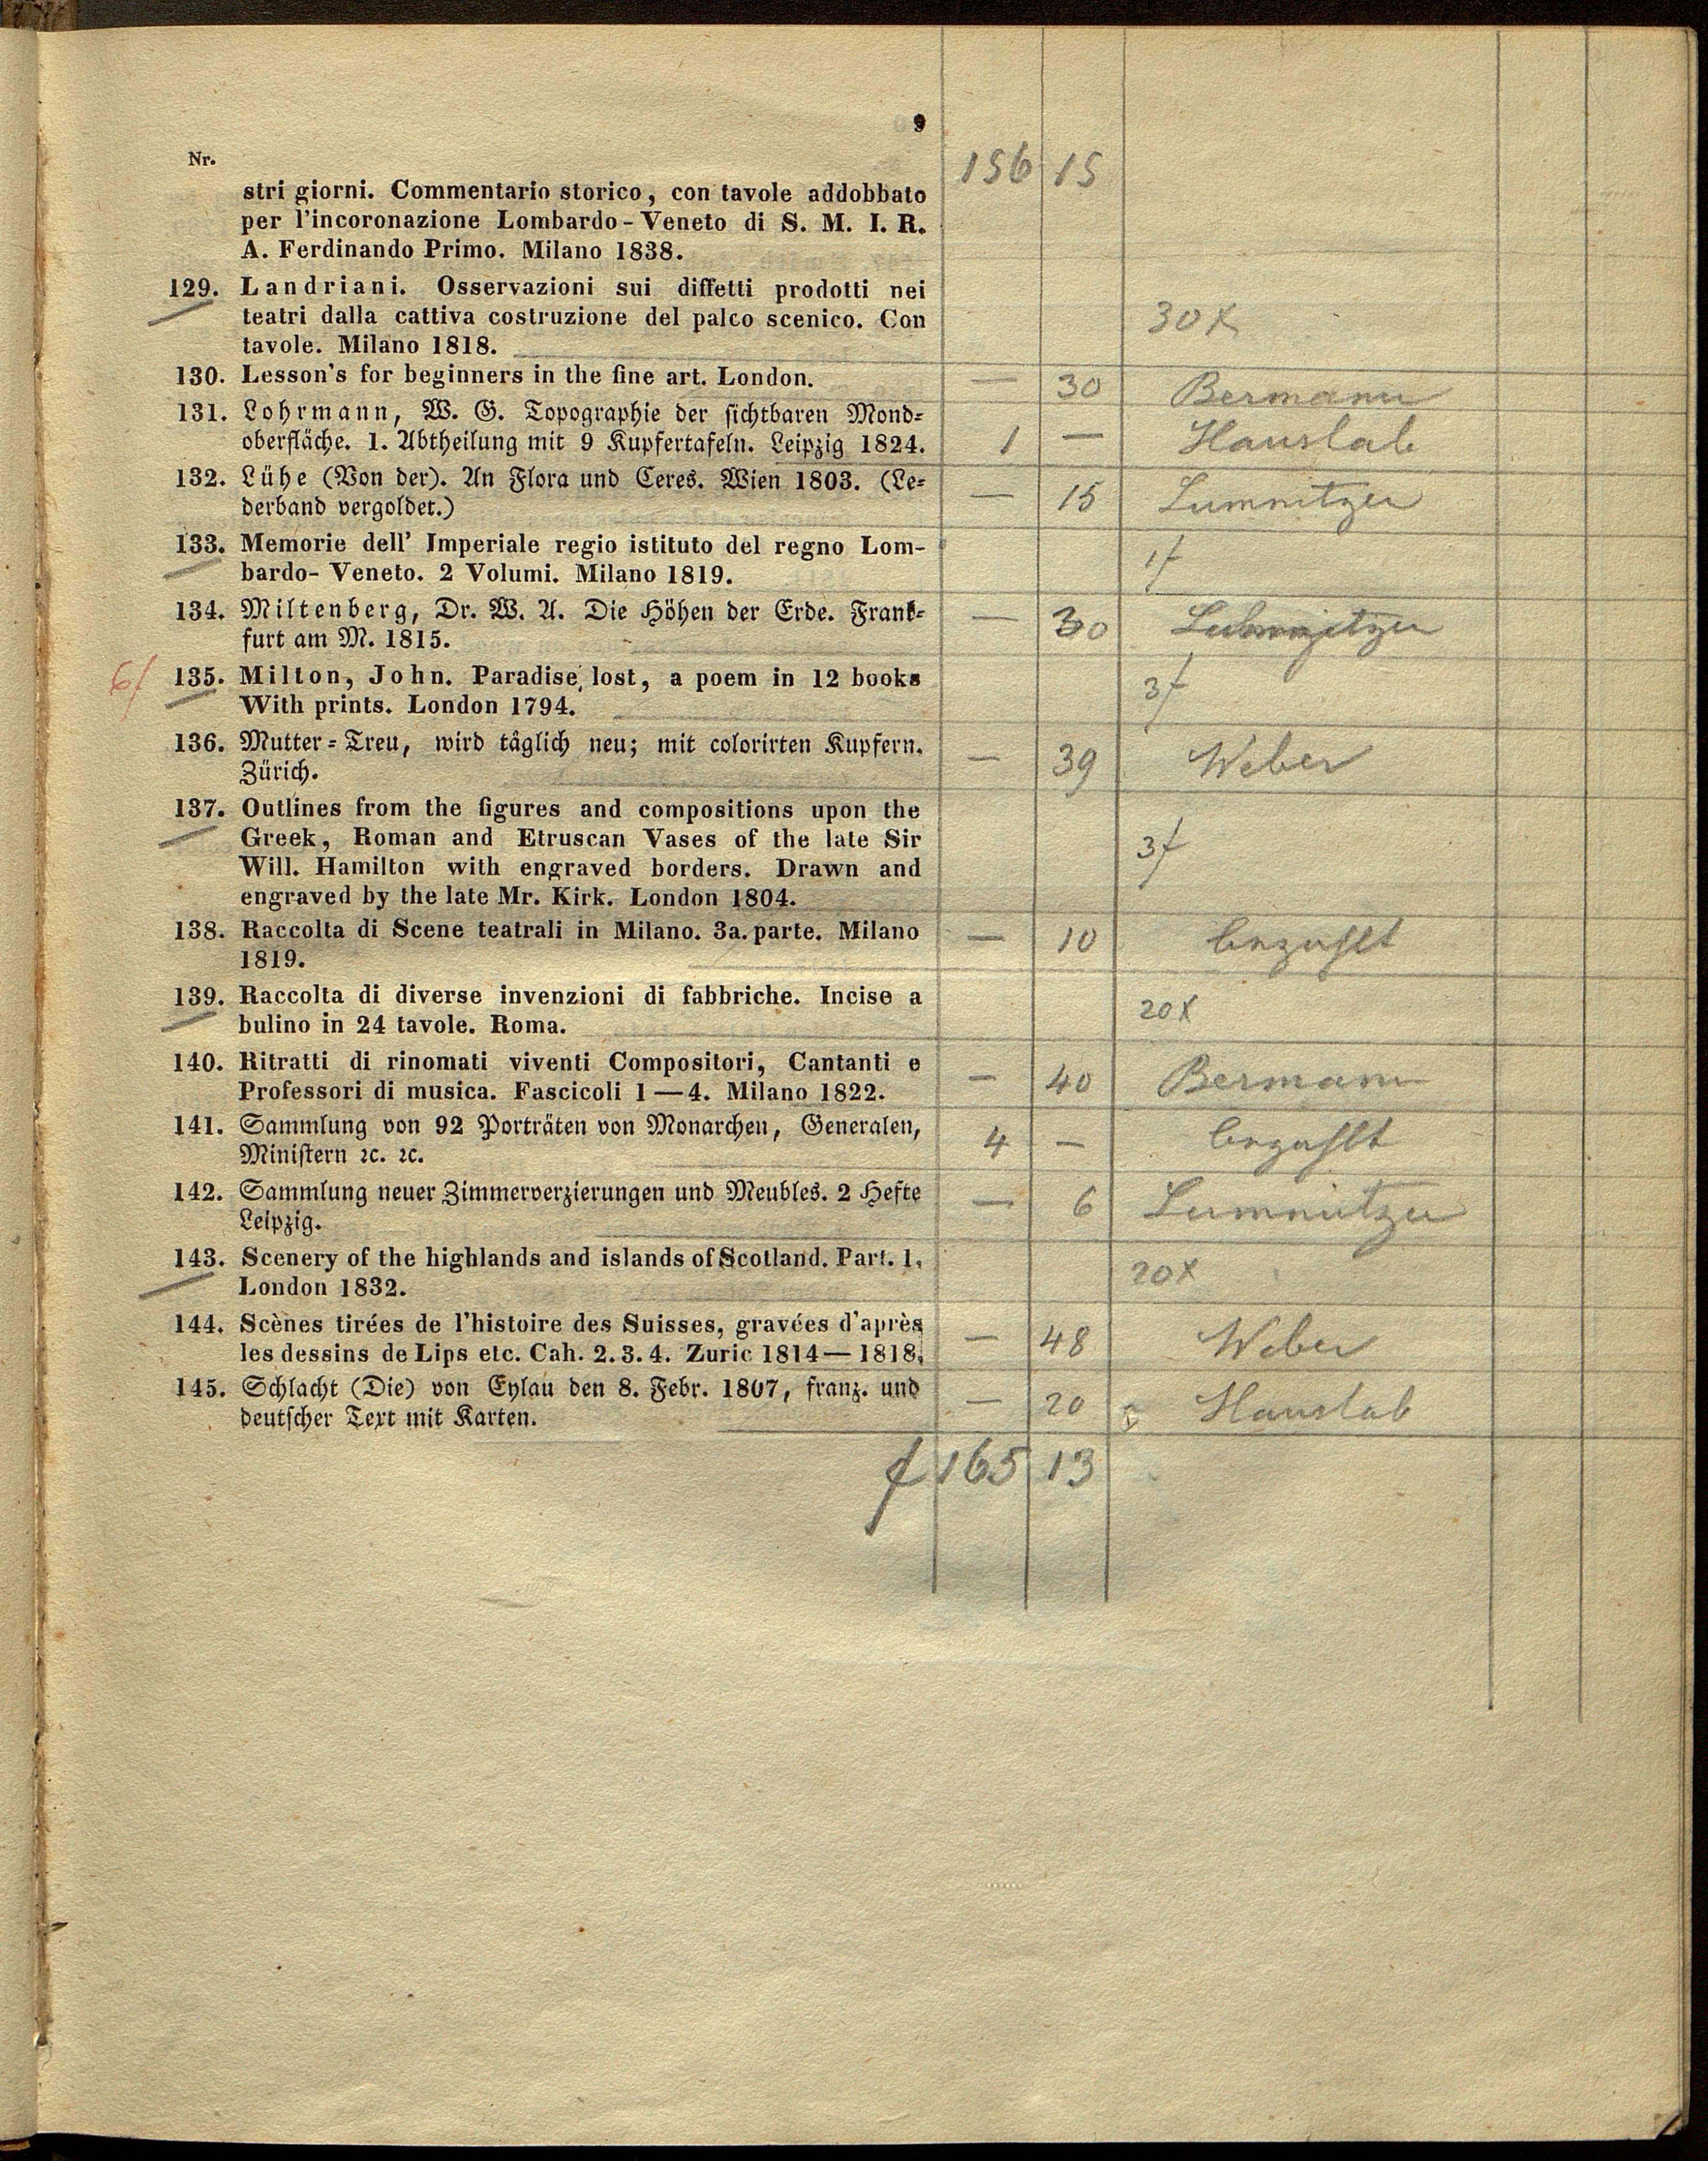 9
Nr.
156 15
stri giorni. Commentario storico, con tavole addobbato
per l'incoronazione Lombardo-Veneto di S. M. I. R.
A. Ferdinando Primo. Milano 1838.
129. Landriani. Osservazioni sui diffetti prodotti nei
teatri dalla cattiva costruzione del palco scenico. Con
tavole. Milano 1818.
30x
130. Lesson's for beginners in the fine art. London. — 30 Bermann
131. Lohrmann, W. G. Topographie der sichtbaren Mond-
oberfläche. 1. Abtheilung mit 9 Kupfertafeln. Leipzig 1824. 1 — Hauslab
132. Lühe (Von der). An Flora und Ceres. Wien 1803. (Le-
derband vergoldet.) — 15 Lumnitzer
133. Memorie dell' Imperiale regio istituto del regno Lom-
bardo- Veneto. 2 Volumi. Milano 1819. 1f
134. Miltenberg, Dr. W. A. Die Höhen der Erde. Frank-
furt am M. 1815. — 30
6f 135. Milton, John. Paradise lost, a poem in 12 books
With prints. London 1794. 3f
136. Mutter-Treu, wird täglich neu; mit colorirten Kupfern.
Zürich. — 39 Weber
137. Outlines from the figures and compositions upon the
Greek, Roman and Etruscan Vases of the late Sir
Will. Hamilton with engraved borders. Drawn and
engraved by the late Mr. Kirk. London 1804.
3f
138. Raccolta di Scene teatrali in Milano. 3a. parte. Milano
1819. — 10 bezahlt
139. Raccolta di diverse invenzioni di fabbriche. Incise a
bulino in 24 tavole. Roma. 20x
140. Ritratti di rinomati viventi Compositori, Cantanti e
Professori di musica. Fascicoli 1—4. Milano 1822. — 40 Bermann
141. Sammlung von 92 Porträten von Monarchen, Generalen,
Ministern ꝛc. ꝛc. 4 — bezahlt
142. Sammlung neuer Zimmerverzierungen und Meubles. 2 Hefte
Leipzig. — 6 Lumnitzer
143. Scenery of the highlands and islands of Scotland. Part. 1.
London 1832. 20x
144. Scènes tirées de l'histoire des Suisses, gravées d'après
les dessins de Lips etc. Cah. 2. 3. 4. Zuric 1814—1818. — 48 Weber
145. Schlacht (Die) von Eylau den 8. Febr. 1807, franz. und
deutscher Text mit Karten. — 20 Hauslab
f 165 13